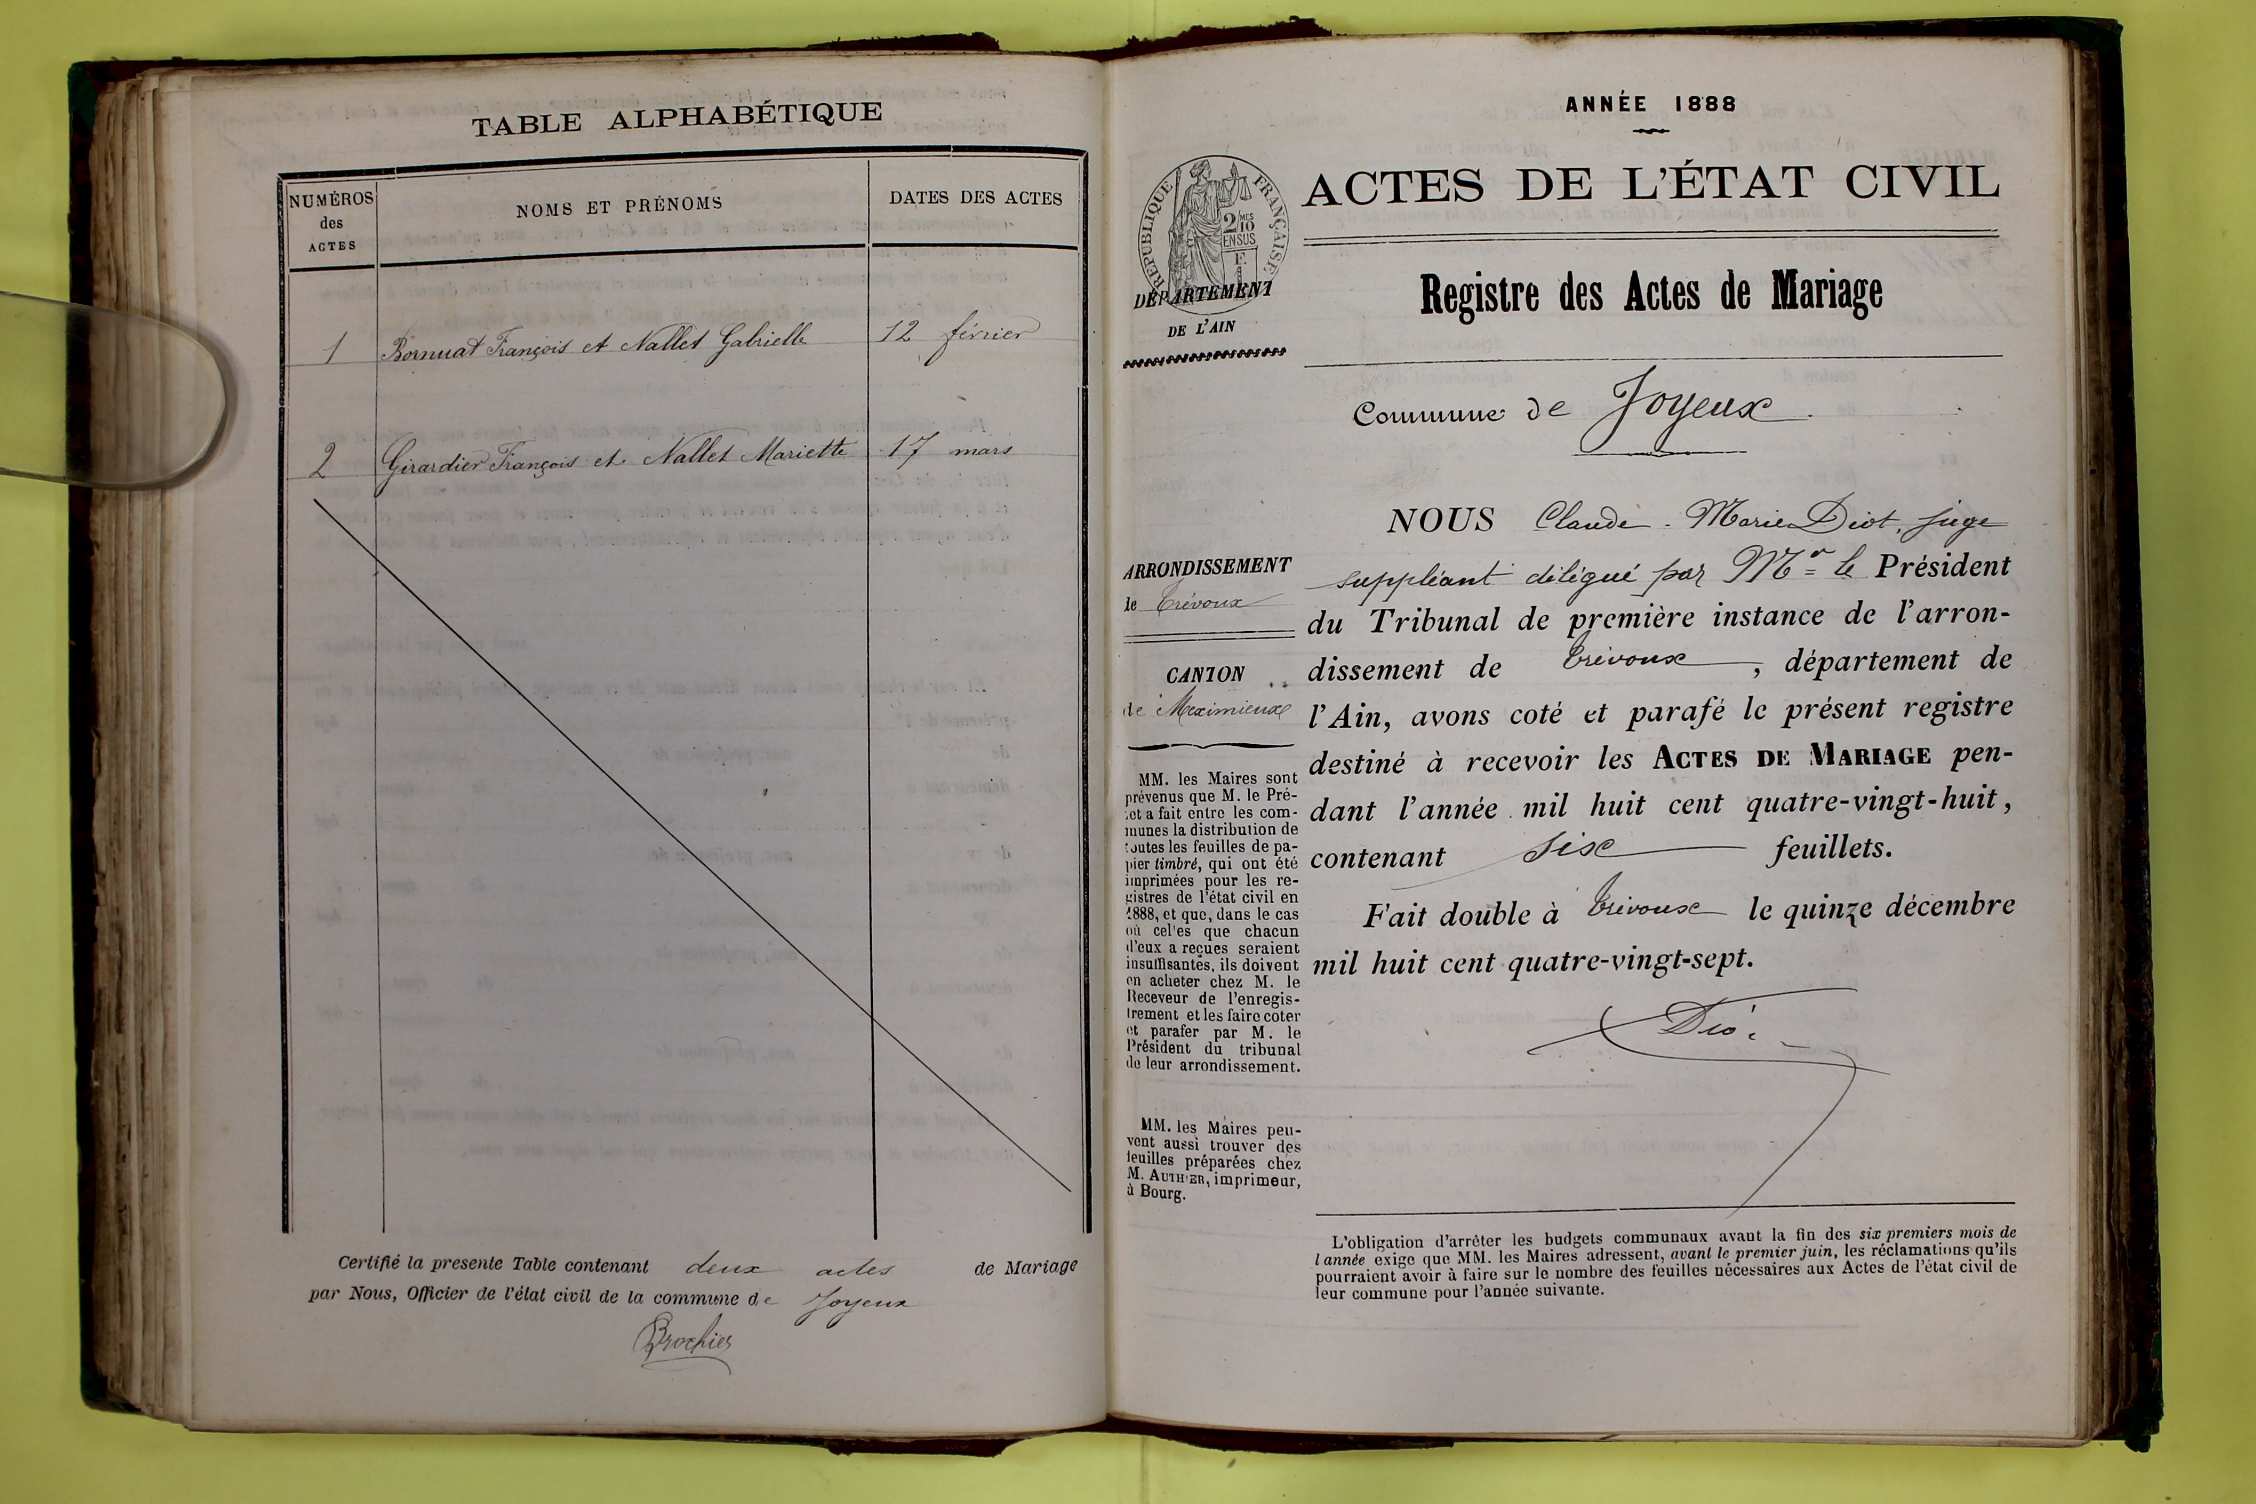 TABLE ALPHABÉTIQUE
NUMÉROS
des
ACTES
NOMS ET PRÉNOMS
DATES DES ACTES
1 Bornuat François et Nallet Gabrielle 12 février
2 Girardier François et Nallet Mariette 17 mars
Certifié la presente Table contenant deux actes de Mariage
par Nous, Officier de l'état civil de la commune de Joyeux
Brochier
ANNÉE 1888
RÉPUBLIQUE FRANÇAISE
2/10
MES
EN SUS
ACTES DE L'ÉTAT CIVIL
DÉPARTEMENT
DE L'AIN
Registre des Actes de Mariage
Commune de Joyeux
ARRONDISSEMENT
de Trévoux
CANTON
de Meximieux
MM. les Maires sont
prévenus que M. le Pré-
fet a fait entre les com-
munes la distribution de
toutes les feuilles de pa-
pier timbré, qui ont été
imprimées pour les re-
gistres de l'état civil en
1888, et que, dans le cas
où celles que chacun
d'eux a reçues seraient
insuffisantes, ils doivent
en acheter chez M. le
Receveur de l'enregis-
trement et les faire coter
et parafer par M. le
Président du tribunal
de leur arrondissement.
MM. les Maires peu-
vent aussi trouver des
feuilles préparées chez
M. AUTHIER, imprimeur,
à Bourg.
NOUS Claude-Marie Diot, juge
suppléant délégué par Mr le Président
du Tribunal de première instance de l'arron-
dissement de Trévoux, département de
l'Ain, avons coté et parafé le présent registre
destiné à recevoir les ACTES DE MARIAGE pen-
dant l'année mil huit cent quatre-vingt-huit,
contenant six feuillets.
Fait double à Trévoux le quinze décembre
mil huit cent quatre-vingt-sept.
L'obligation d'arrêter les budgets communaux avant la fin des six premiers mois de
l'année exige que MM. les Maires adressent, avant le premier juin, les réclamations qu'ils
pourraient avoir à faire sur le nombre des feuilles nécessaires aux Actes de l'état civil de
leur commune pour l'année suivante.